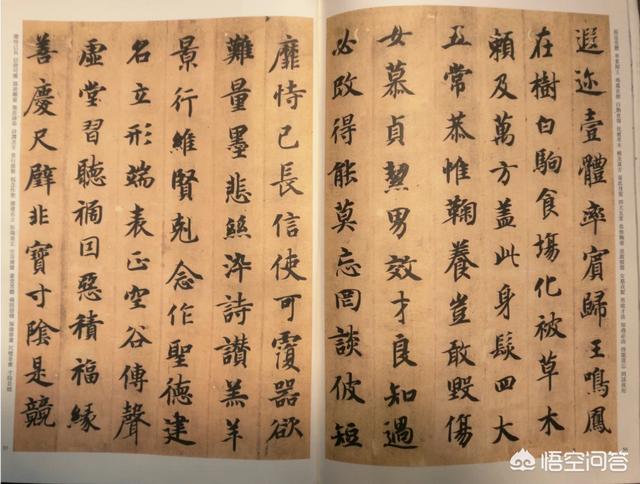 遐迩壹體率賓歸王鳴鳳
在樹白駒食場化被草木
賴及萬方蓋此身髮四大
五常恭惟鞠養豈敢毀傷
女慕貞絜男效才良知過
必改得能莫忘罔談彼短
靡恃己長信使可覆器欲
難量墨悲絲染詩讚羔羊
景行維賢剋念作聖德建
名立形端表正空谷傳聲
虛堂習聽禍因惡積福緣
善慶尺璧非寶寸陰是競
悟空问答